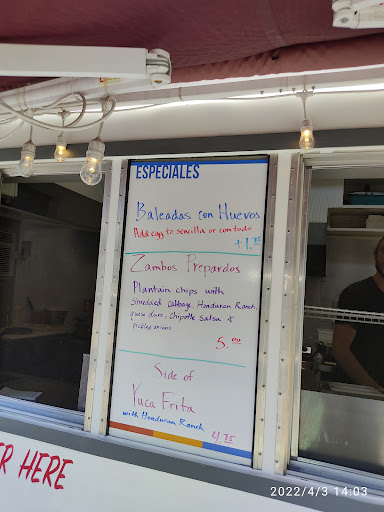 ESPECIALES
Baleadas con Huevos
Add egg to sencilla or con todo
Zambos Prepardos
Plantain chips with
Shredded cabbage, Honduran Ranch,
queso duro, Chipotle salsa &
pickled onions
5.00
Side of
Yuca Frita
with Honduran Ranch
4.75
R HERE
2022/4/3 14:03